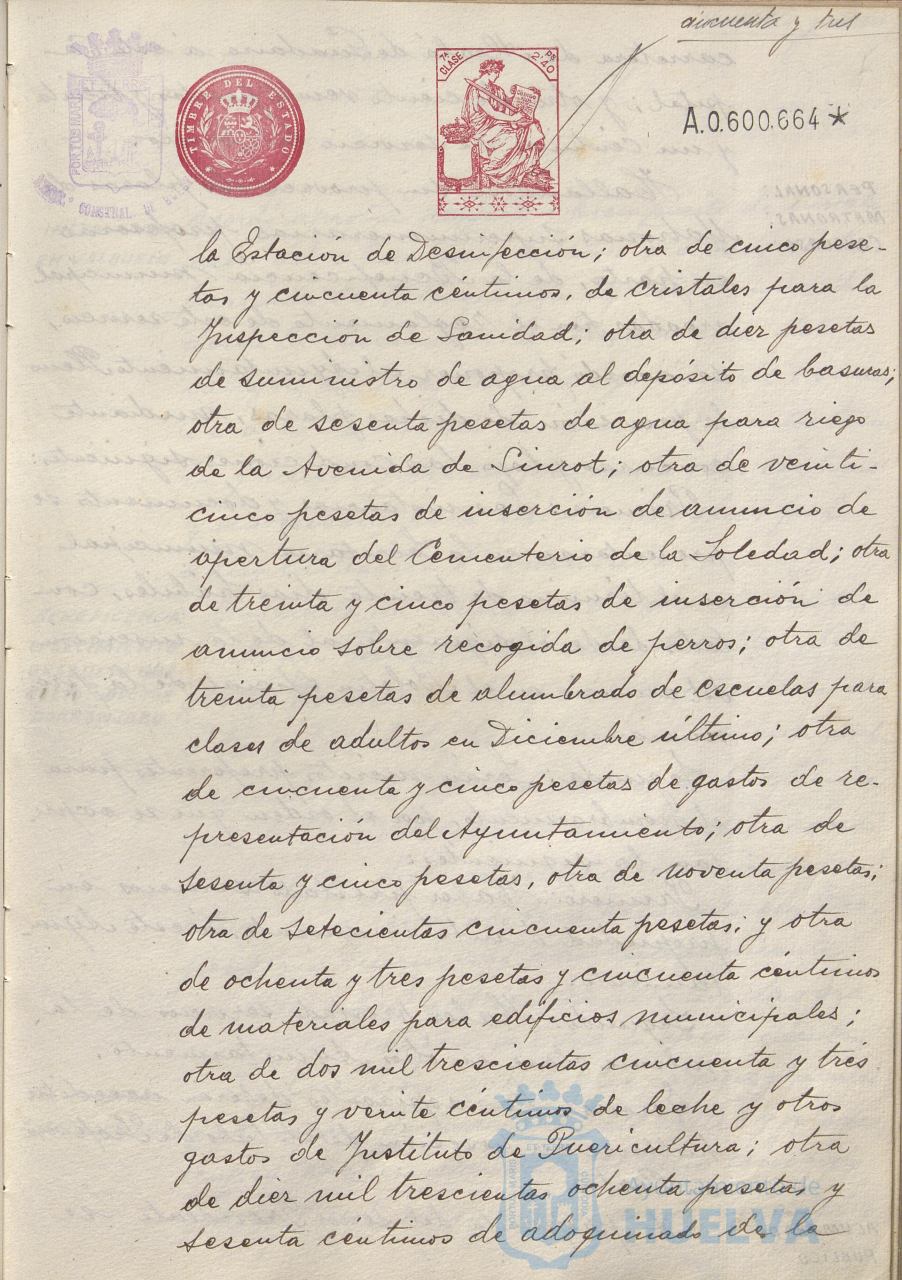 cincuenta y tres
TIMBRE DEL ESTADO
7ª CLASE
Ps 2'40
A.0.600.664 *
la Estación de Desinfección; otra de cinco pese-
tas y cincuenta céntimos, de cristales para la
Inspección de Sanidad; otra de diez pesetas
de suministro de agua al depósito de basuras;
otra de sesenta pesetas de agua para riego
de la Avenida de Siurot; otra de veinti-
cinco pesetas de inserción de anuncio de
apertura del Cementerio de la Soledad; otra
de treinta y cinco pesetas de inserción de
anuncio sobre recogida de perros; otra de
treinta pesetas de alumbrado de escuelas para
clases de adultos en Diciembre último; otra
de cincuenta y cinco pesetas de gastos de re-
presentación del Ayuntamiento; otra de
sesenta y cinco pesetas, otra de noventa pesetas;
otra de setecientas cincuenta pesetas; y otra
de ochenta y tres pesetas y cincuenta céntimos
de materiales para edificios municipales;
otra de dos mil trescientas cincuenta y tres
pesetas y veinte céntimos de leche y otros
gastos de Instituto de Puericultura; otra
de diez mil trescientas ochenta pesetas y
sesenta céntimos de adoquinado de la
Ayuntamiento de
HUELVA